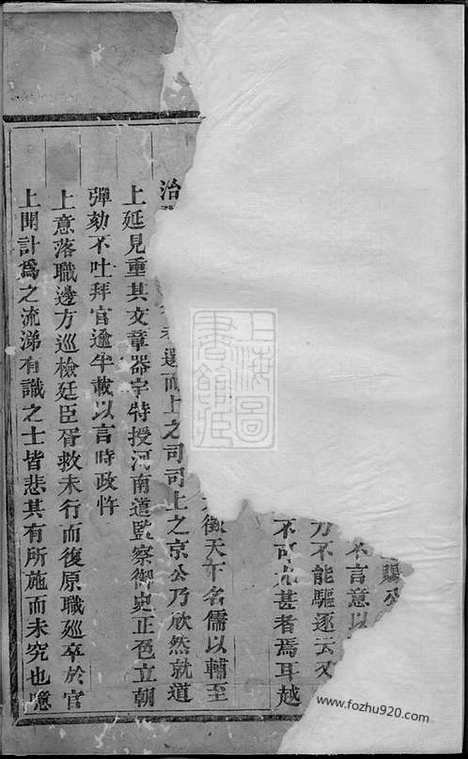 賜
不言意以
力不能驅逐云
不可 甚者焉耳越
徵天下名儒以輔至
治
選而上之司司上之京公乃欣然就道
上延見重其文章器宇特授河南道監察御史正色立朝
彈劾不吐拜官逾半載以言時政忤
上意落職邊方巡檢廷臣胥救未行而復原職廵卒於官
上聞訃爲之流涕有識之士皆悲其有所施而未究也隱
上海圖書館藏
www.fozhu920.com